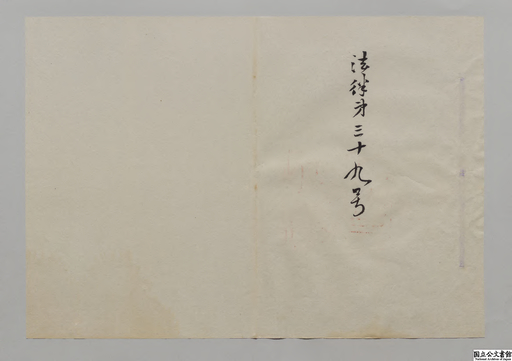 法律第三十九号
国立公文書館
National Archives of Japan